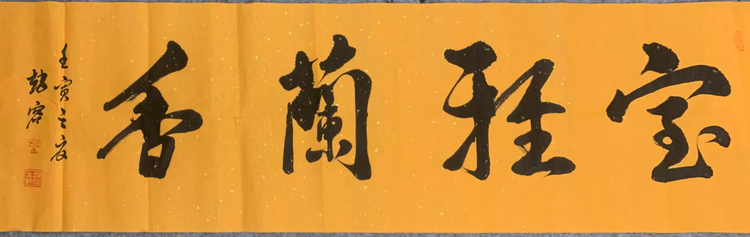 室雅蘭香
壬寅之夏